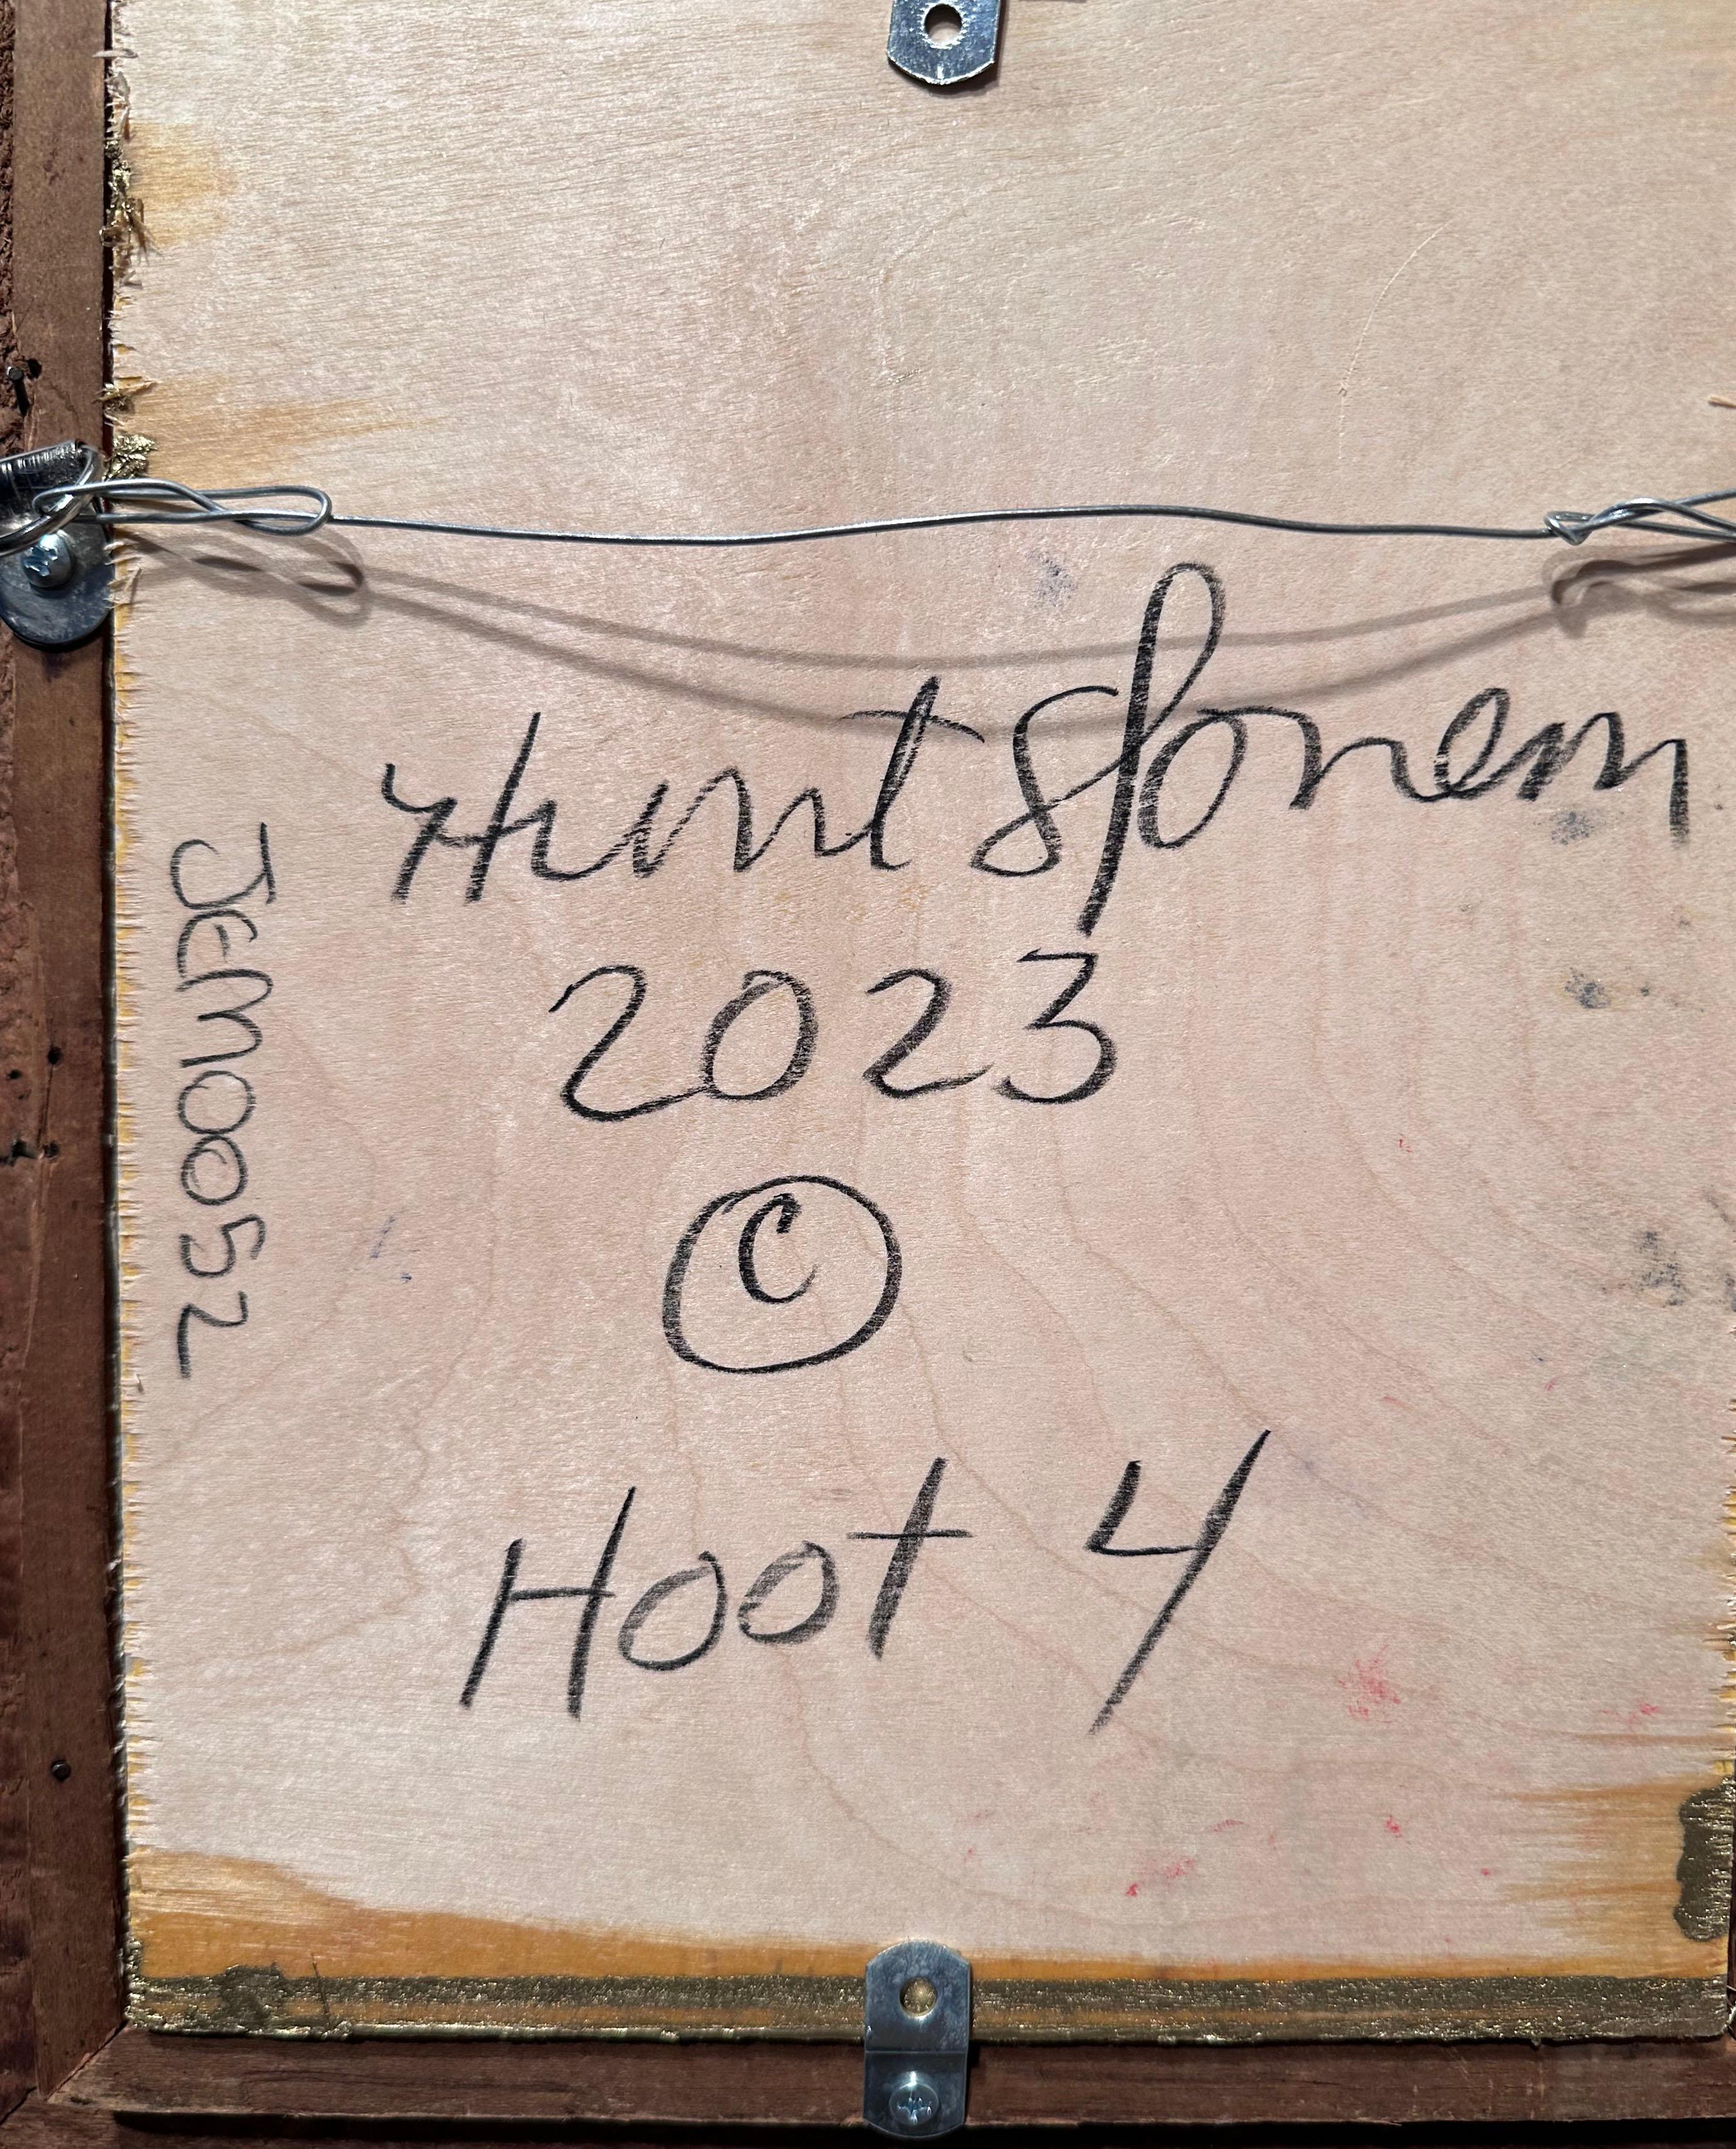 Hunt Slonem
2023
©
Hoot 4
JEM0052